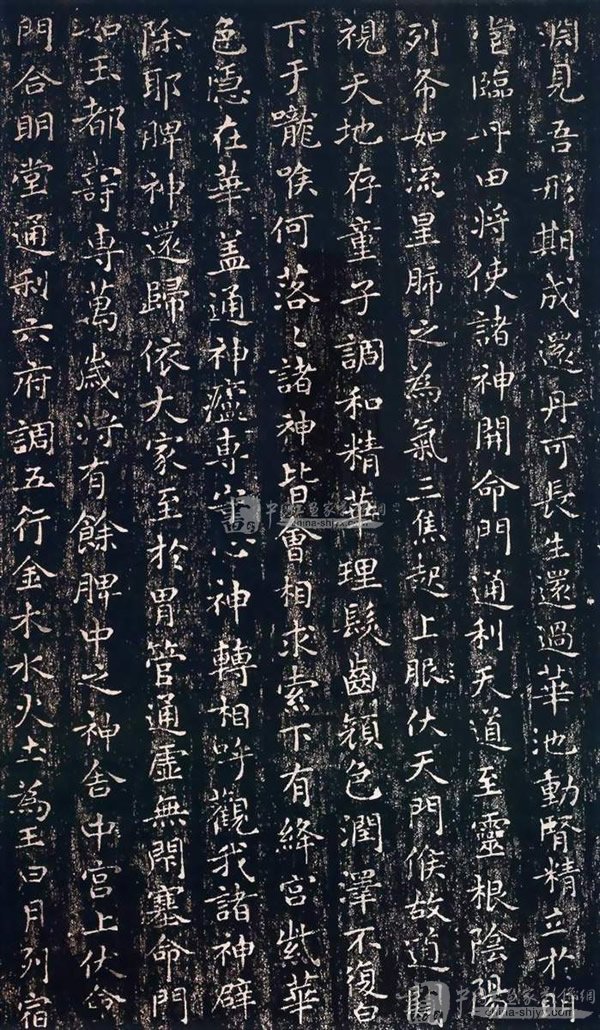 淵見吾形期成還丹可長生還過華池動腎精立於明
堂臨丹田將使諸神開命門通利天道至靈根陰陽
列布如流星肺之為氣三焦起上服伏天門候故道闚
視天地存童子調和精華理髮齒顏色潤澤不復白
下于嚨喉何落〻諸神皆會相求索下有絳宮紫華
色隱在華蓋通神廬專守心神轉相呼觀我諸神辟
除耶脾神還歸依大家至於胃管通虛無閉塞命門
如玉都壽專萬歲將有餘脾中之神舍中宮上伏命
門合明堂通利六府調五行金木水火土為王日月列宿